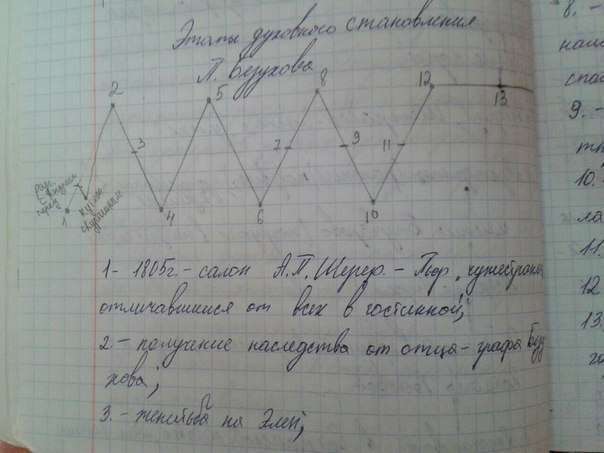 Этапы духовного становления
П. Безухова
2
5
8
12
13
3
7
9
11
1
4
6
10
1- 1805г.- салон А.П. Шерер. - Пьер,
отличавшийся от всех в гостинной;
2.- получение наследства от отца- графа Безу
хова;
3.- женитьба на Элен;
8. -
9. -
10.
11.
12
13.